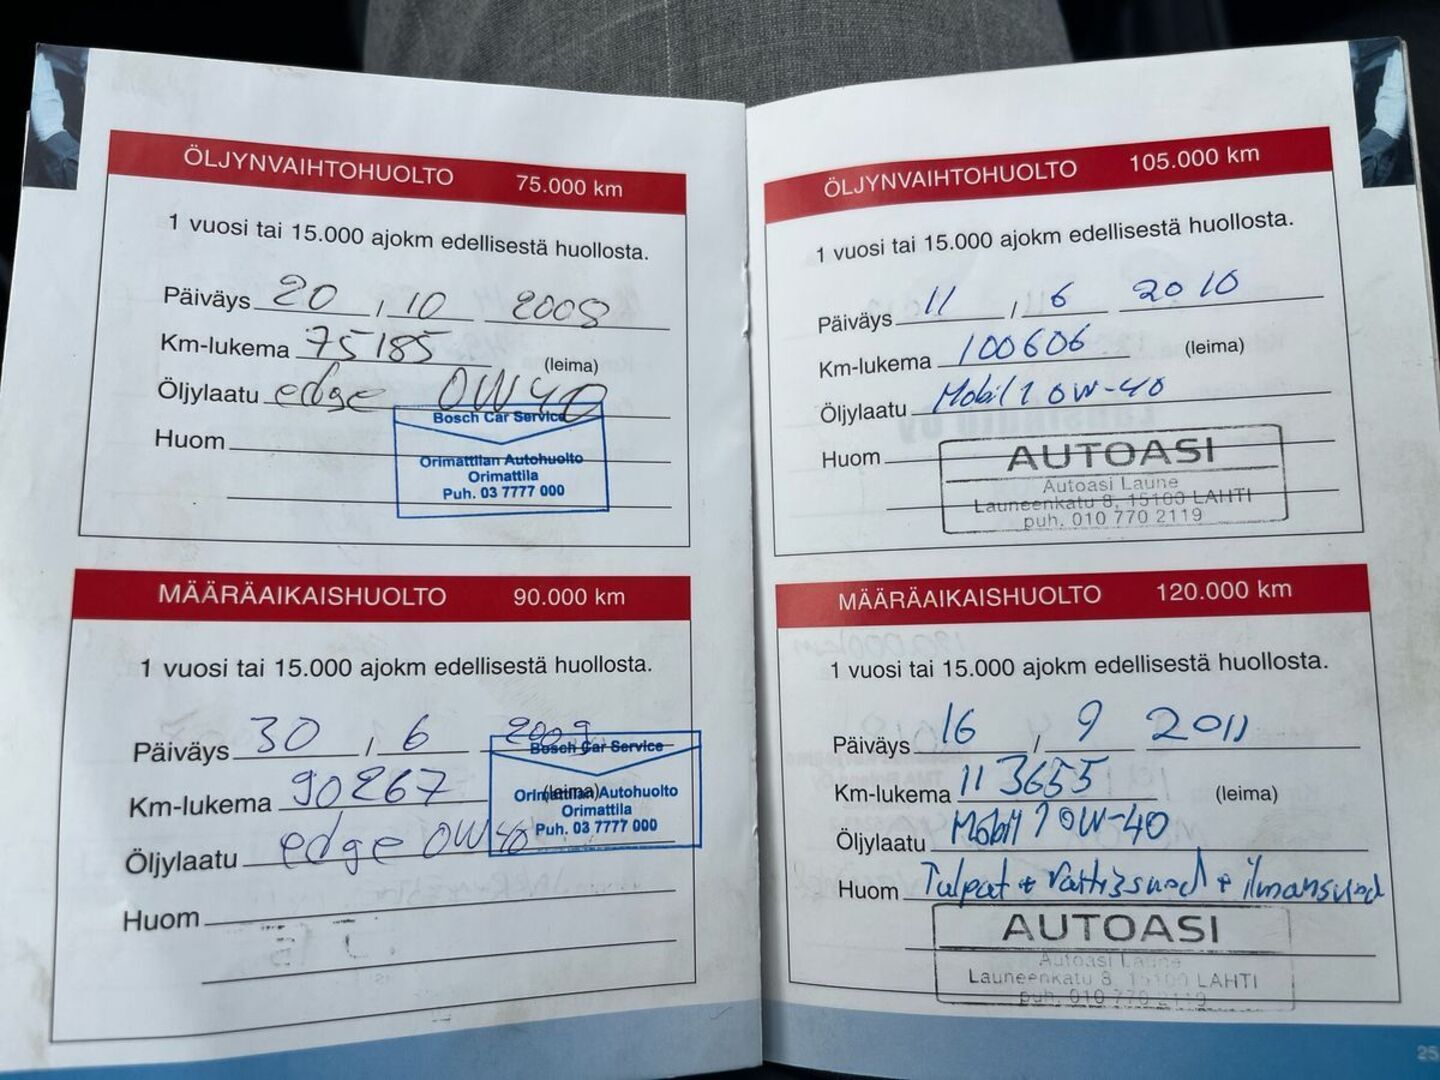 ÖLJYNVAIHTOHUOLTO 75.000 km
1 vuosi tai 15.000 ajokm edellisestä huollosta.
Päiväys 20 , 10 2008
Km-lukema 75185 (leima)
Öljylaatu edge 0W40
Bosch Car Service
Huom
Orimattilan Autohuolto
Orimattila
Puh. 03 7777 000
MÄÄRÄAIKAISHUOLTO 90.000 km
1 vuosi tai 15.000 ajokm edellisestä huollosta.
Päiväys 30 , 6 2009
Bosch Car Service
Km-lukema 90267 (leima)
Orimattilan Autohuolto
Orimattila
Puh. 03 7777 000
Öljylaatu edge 0W40
Huom
ÖLJYNVAIHTOHUOLTO 105.000 km
1 vuosi tai 15.000 ajokm edellisestä huollosta.
Päiväys 11 , 6 2010
Km-lukema 100606 (leima)
Öljylaatu Mobil 1 0W-40
Huom
AUTOASI
Autoasi Laune
Launeenkatu 8, 15100 LAHTI
puh. 010 770 2119
MÄÄRÄAIKAISHUOLTO 120.000 km
1 vuosi tai 15.000 ajokm edellisestä huollosta.
Päiväys 16 , 9 2011
Km-lukema 113655 (leima)
Öljylaatu Mobil 1 0W-40
Huom Tulpat + raitissuod + ilmansuod
AUTOASI
Autoasi Laune
Launeenkatu 8, 15100 LAHTI
puh. 010 770 2119
25